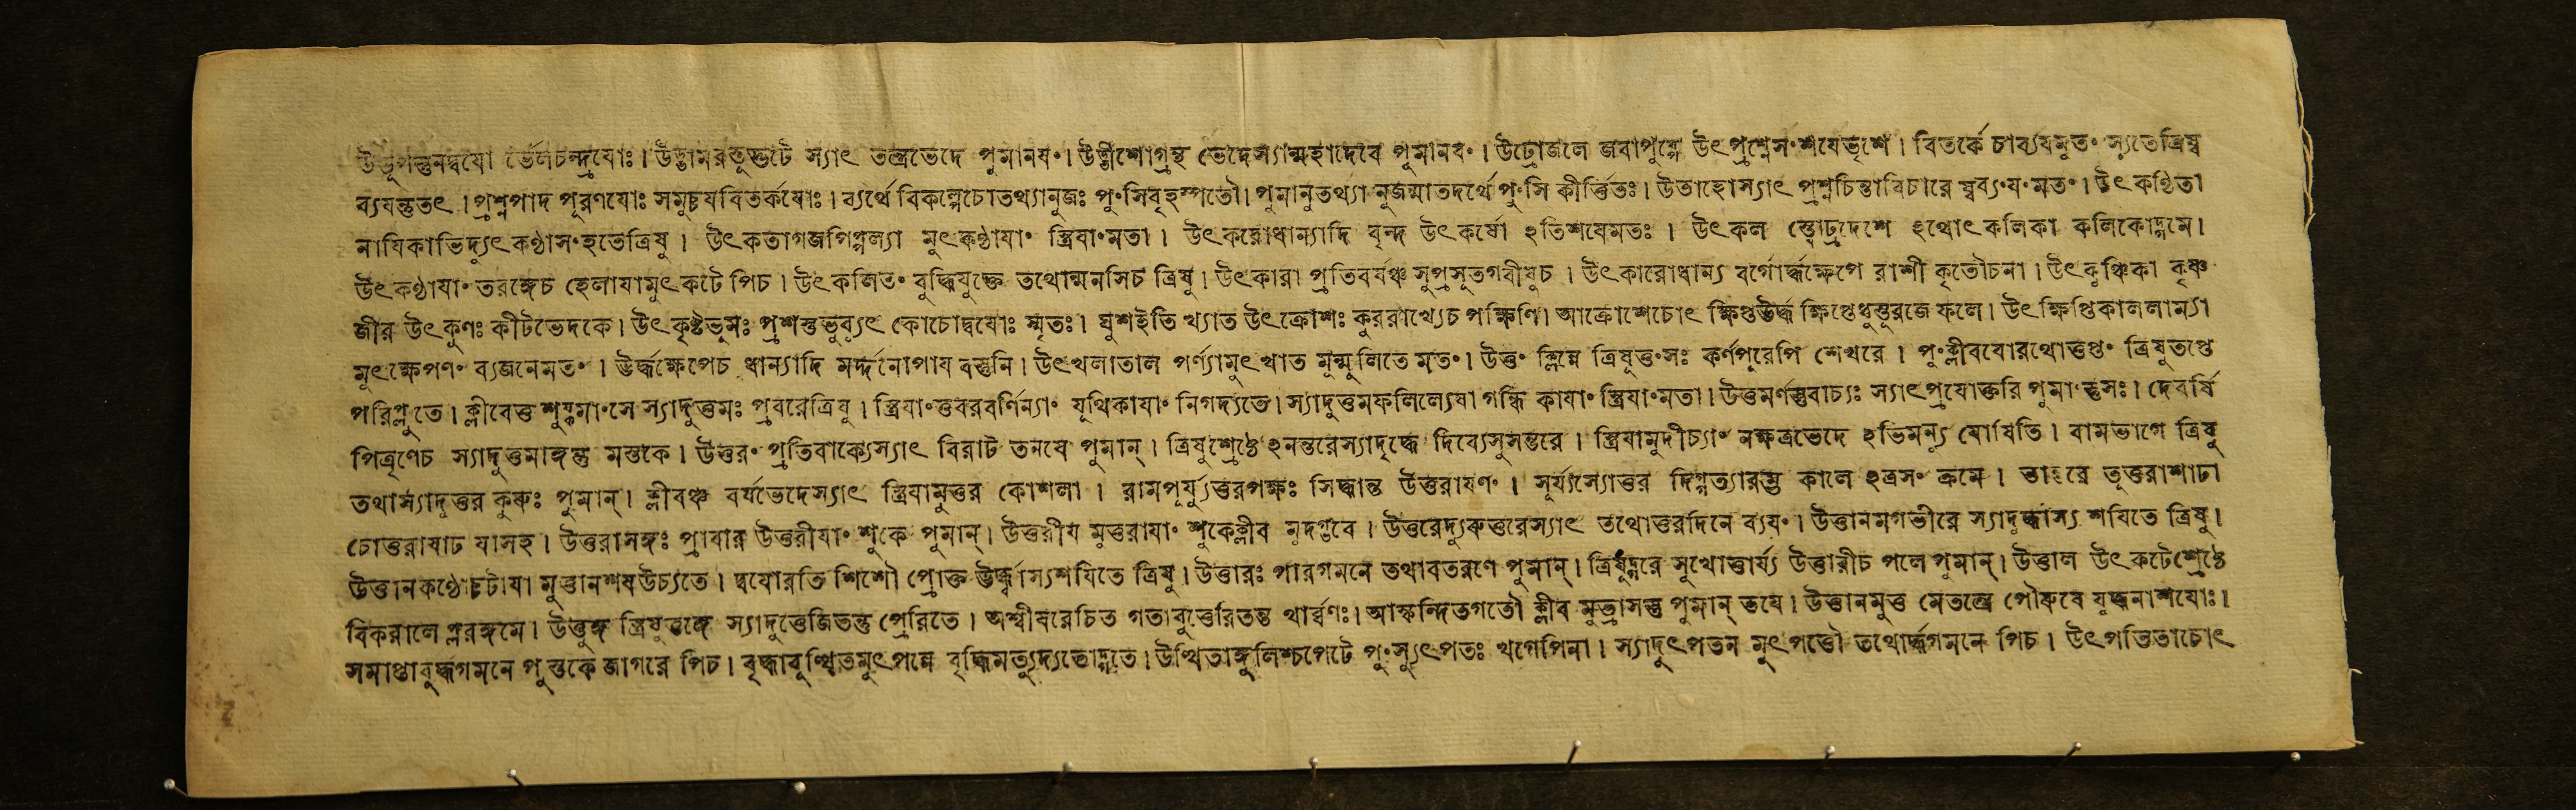 উড়ূপন্তুনদ্বযো র্ভেলচন্দ্রযোঃ। উড্ডামরন্তূদ্ভটে স্যাৎ তন্ত্রভেদে পুমানযং। উড্ডীশোগ্রন্থ ভেদেস্যান্মহাদেবে পুমানযং। উড্রোজলে জবাপুষ্পে উৎপ্রশ্নেসংশযেভৃশে। বিতর্কে চাব্যযমুতং স্যূতেত্রিষ্ব
ব্যযন্তুতৎ। প্রশ্নপাদ পূরণযোঃ সমুচ্চযবিতর্কযোঃ। ব্যর্থে বিকল্পেচোতথ্যানুজঃ পুংসিবৃহস্পতৌ। পুমানুতথ্যানুজন্মাতদর্থে পুংসি কীর্ত্তিতঃ। উতাহোস্যাৎ প্রশ্নচিন্তাবিচারে ষ্বব্যংযংমতং। উৎকণ্ঠিতা
নাযিকাভিদ্যুৎকণ্ঠাসংহতেত্রিষু। উৎকতাগজপিপ্পল্যা মুৎকণ্ঠাযাং স্ত্রিযাংমতা। উৎকরোধান্যাদি বৃন্দ উৎকর্ষো ঽতিশযেমতঃ। উৎকল স্ত্বোঢ্রদেশে ঽথোৎকলিকা কলিকোদ্গমে।
উৎকণ্ঠাযাং তরঙ্গেচ হেলাযামুৎকটে পিচ। উৎকলিতং বুদ্ধিযুক্তে তথোন্মনসিচ ত্রিষু। উৎকারা প্রতিবর্ষঞ্চ সুপ্রসূতগবীষুচ। উৎকারোধান্য বর্গোর্দ্ধক্ষেপে রাশী কৃতৌচনা। উৎকুঞ্চিকা কৃষ্ণ
জীর উৎকুণঃ কীটভেদকে। উৎকৃষ্টভূমঃ প্রশস্তভুব্যুৎ কোচোদ্বযোঃ স্মৃতঃ। ঘুশইতি খ্যাত উৎক্রোশঃ কুররাখ্যেচ পক্ষিণি। আক্রোশেচোৎ ক্ষিপ্তঊর্দ্ধ ক্ষিপ্তেধুত্তূরজে ফলে। উৎক্ষিপ্তিকাললাম্যা
মুৎক্ষেপণং ব্যজনেমতং। ঊর্দ্ধক্ষেপেচ ধান্যাদি মর্দ্দনোপায বস্তুনি। উৎখলাতাল পর্ণ্যামুৎখাত মুন্মূলিতে মতং। উত্তং ক্লিন্নে ত্রিষূত্তংসঃ কর্ণপূরেপি শেখরে। পুংক্লীবযোরথোত্তপ্তং ত্রিষুতপ্তে
পরিপ্লুতে। ক্লীবেত্ত শুষ্কমাংসে স্যাদুত্তমঃ প্রবরেত্রিষু। স্ত্রিযাংত্তবরবর্ণিন্যাং যূথিকাযাং নিগদ্যতে। স্যাদুত্তমফলিল্যেষা গন্ধি কাযাং স্ত্রিযাংমতা। উত্তমর্ণস্তুবাচ্যঃ স্যাৎপ্রযোক্তরি পুমাংস্তুসঃ। দেবর্ষি
পিতৃণেচ স্যাদুত্তমাঙ্গন্তু মস্তকে। উত্তরং প্রতিবাক্যেস্যাৎ বিরাট তনযে পুমান্। ত্রিষুশ্রেষ্ঠে ঽনন্তরেস্যাদূর্দ্ধে দিব্যেসুসন্তরে। স্ত্রিযামুদীচ্যাং নক্ষত্রভেদে ঽভিমন্যু যোষিতি। বামভাগে ত্রিষু
তথাস্যাদুত্তর কুরুঃ পুমান্। ক্লীবঞ্চ বর্ষভেদেস্যাৎ স্ত্রিযামুত্তর কোশলা। রামপূর্য্যুত্তরপক্ষঃ সিদ্ধান্ত উত্তরাযণং। সূর্য্যস্যোত্তর দিগ্গত্যারম্ভ কালে ঽত্রসং ক্রমে। তূত্তরাশাঢা
চোত্তরাষাঢ যাসহ। উত্তরাসঙ্গঃ প্রাবার উত্তরীযাং শুকে পুমান্। উত্তরীয মুত্তরাযাং শুকেক্লীব উত্তরেদ্যুরুত্তরেস্যাৎ তথোত্তরদিনে ব্যযং। উত্তানমগভীরে স্যাদূর্দ্ধাস্য শযিতে ত্রিষু।
উত্তানকণ্ঠোচটাযা মুত্তানশযউচ্যতে। দ্বযোরতি শিশৌ প্রোক্ত ঊর্দ্ধাস্যশযিতে ত্রিষু। উত্তারঃ পারগমনে তথাবতরণে পুমান্। ত্রিষুদ্গরে সুখোত্তার্য্য উত্তারীচ পলে পুমান্। উত্তাল উৎকটেশ্রেষ্ঠে
বিকরালে প্লবঙ্গমে। উত্তুঙ্গ স্ত্রিষূত্তঙ্গে স্যাদুত্তেজিতন্তু প্রেরিতে। অশ্বীযরেচিত গতাবুত্তেরিতন্ত থার্ব্বণঃ। আস্কন্দিতগতৌ ক্লীব মুত্ত্রাসস্তু পুমান্ ভযে। উত্থানমুত্ত মেতন্ত্রে পৌরুষে যুদ্ধনাশযোঃ।
সমাপ্তাবুর্দ্ধগমনে পুস্তকে জাগরে পিচ। বৃদ্ধাবুত্থিতমুৎপন্নে বৃদ্ধিমত্যুদ্যতোদ্গতে। উত্থিতাঙ্গুলিশ্চপেটে পুংস্যুৎপতঃ খগেপিনা। স্যাদুৎপতন মুৎপত্তৌ তথোর্দ্ধগমনে পিচ। উৎপত্তিতাচোৎ